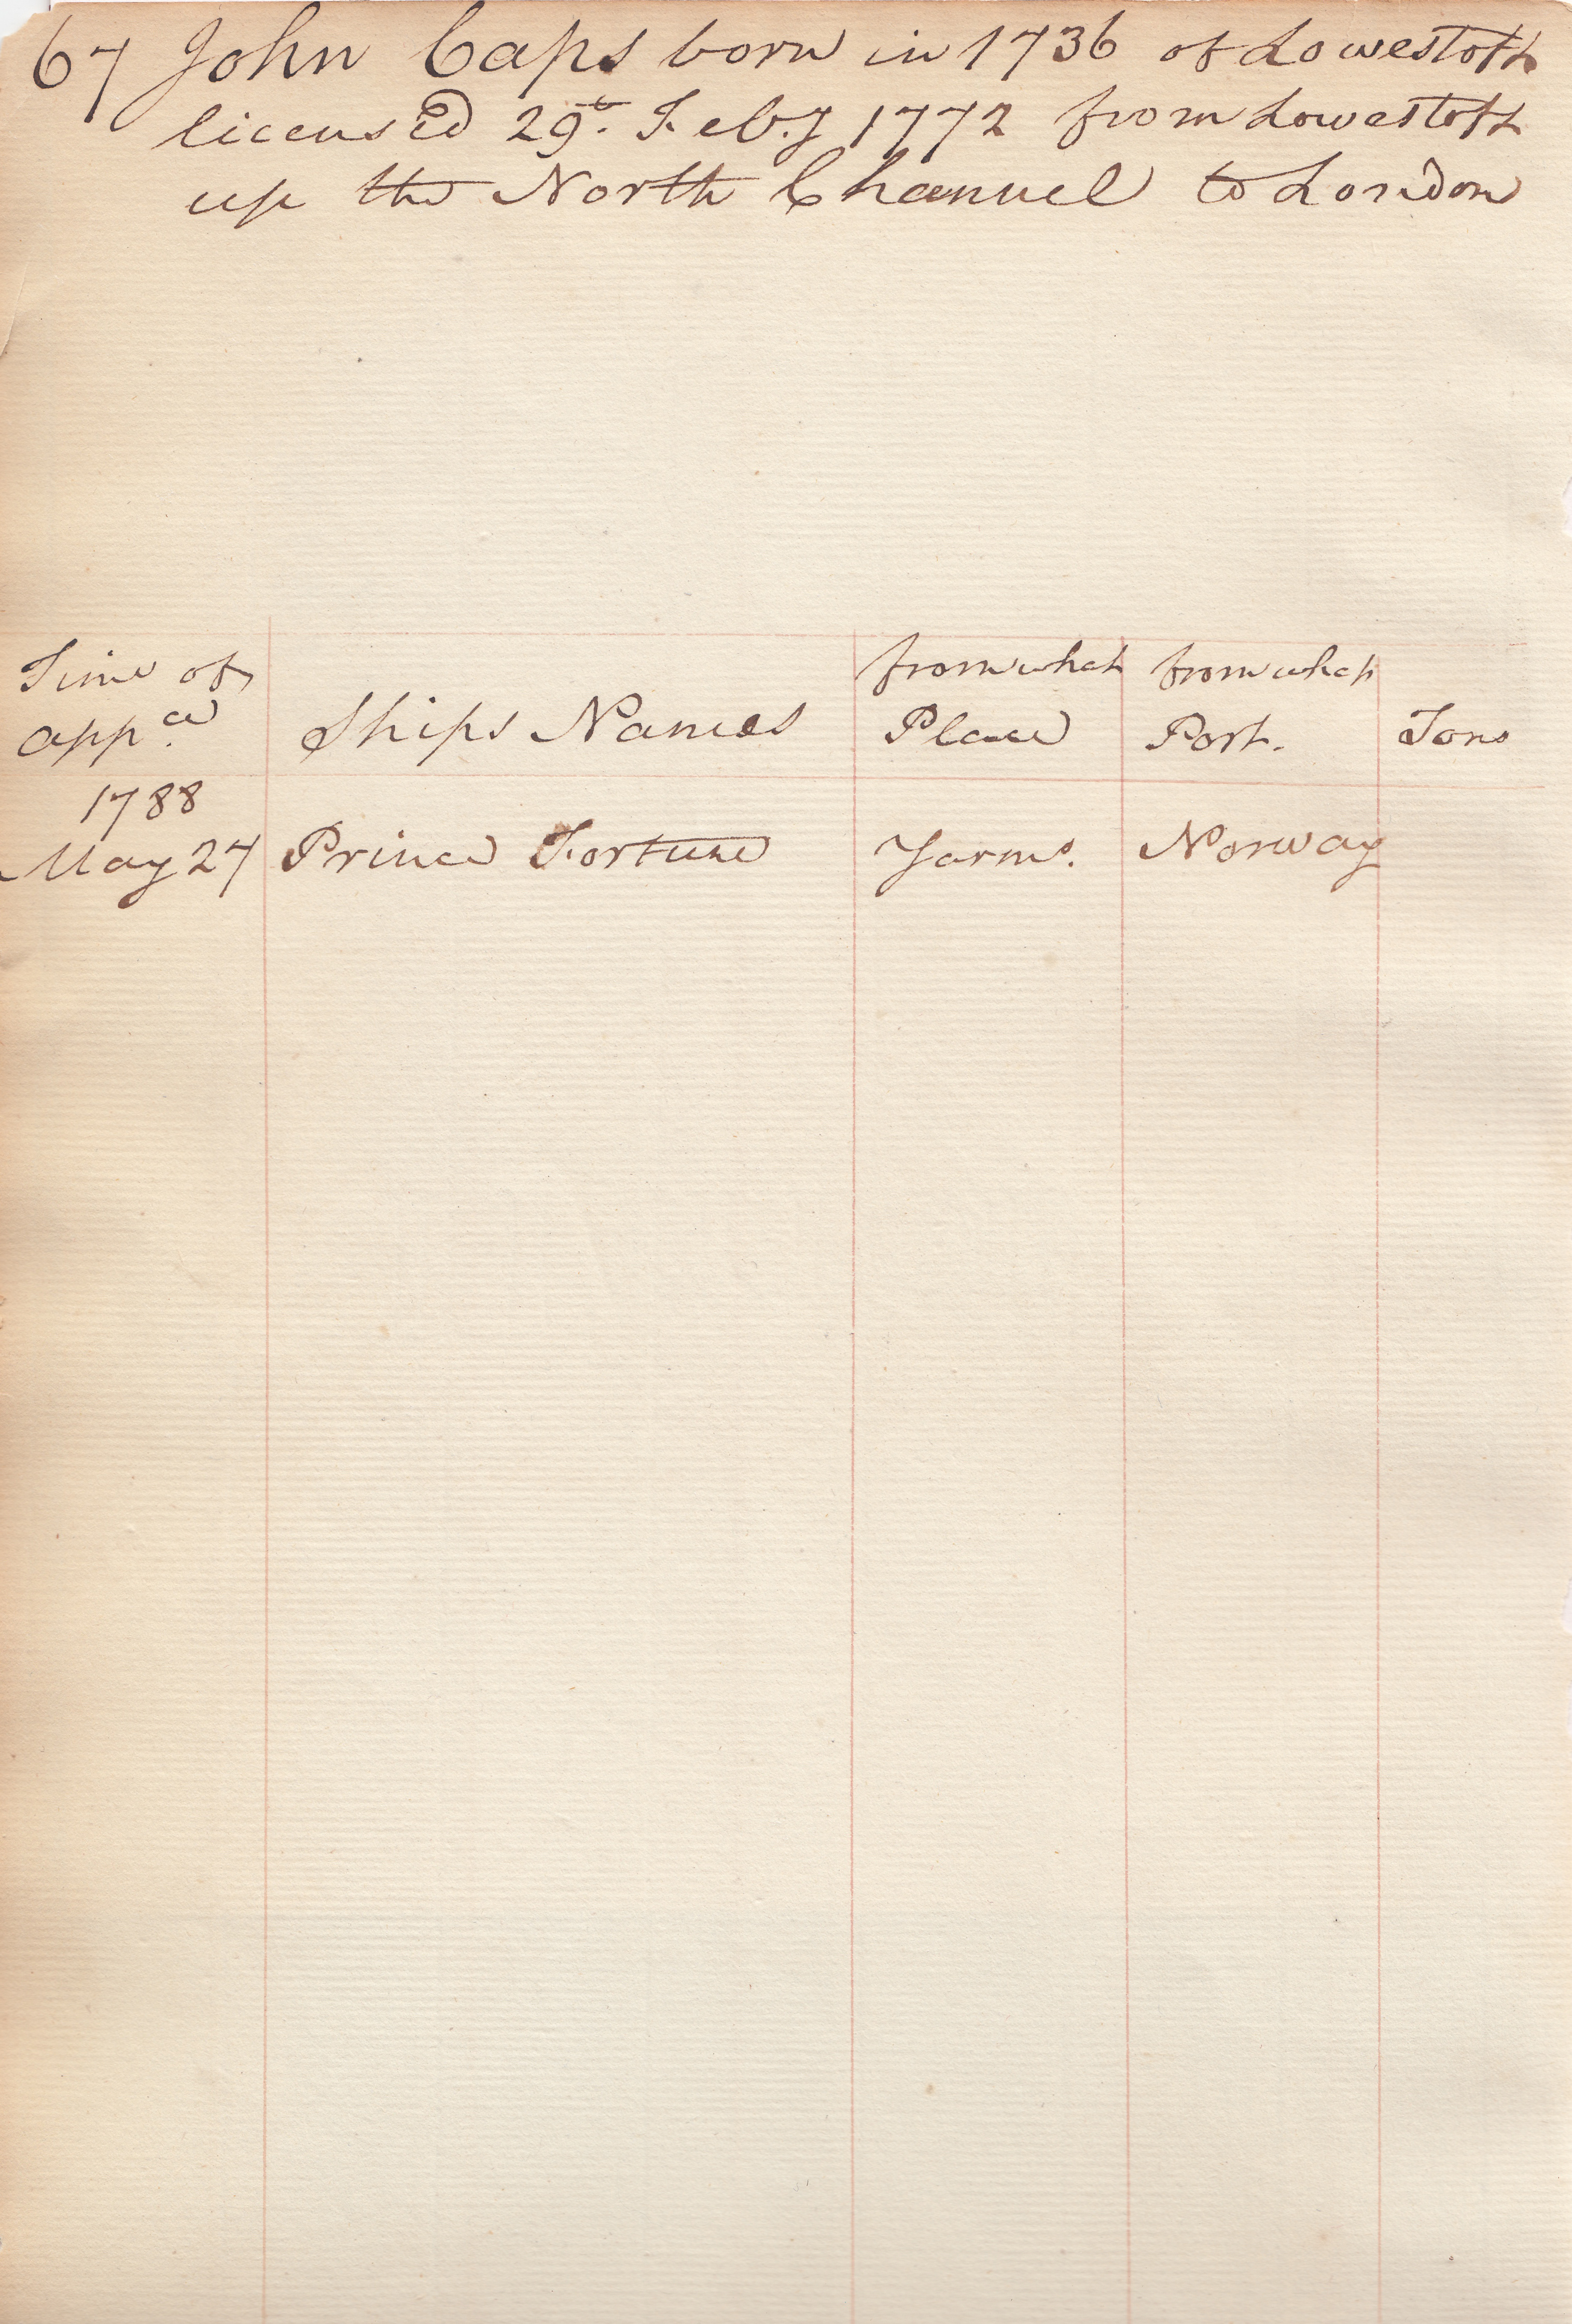 67 John Caps born in 1736 of Lowestoft
licensed 29th Feb.y 1772 from Lowestoft
up the North Channel to London
Time of appce. Ships Names from what Place from what Port. Tons
1788
May 27 Prince Fortune Yarmo. Norway